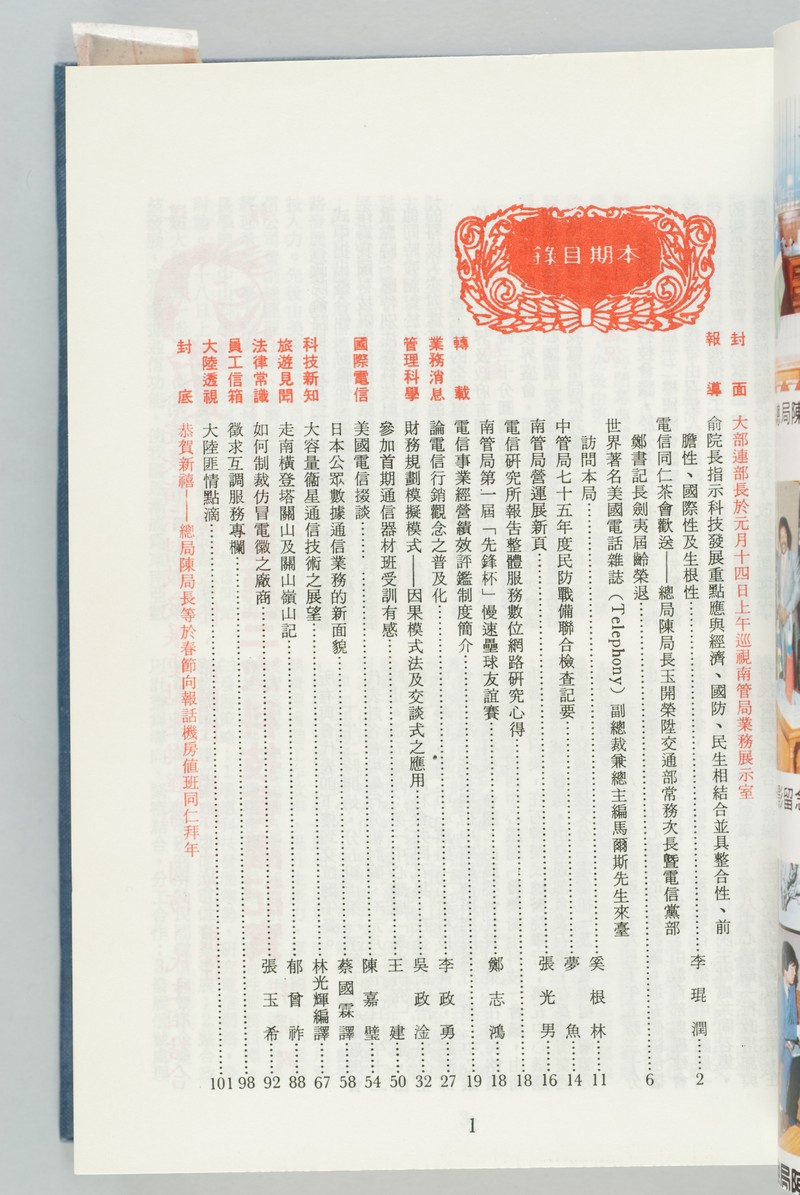 本期目錄
封面
大部連部長於元月十四日上午巡視南管局業務展示室
報導
俞院長指示科技發展重點應與經濟、國防、民生相結合並具整合性、前
瞻性、國際性及生根性……李琨潤……2
電信同仁茶會歡送——總局陳局長玉開榮陞交通部常務次長暨電信黨部
鄭書記長劍夷屆齡榮退……6
世界著名美國電話雜誌（Telephony）副總裁兼總主編馬爾斯先生來臺
訪問本局……奚根林……11
中管局七十五年度民防戰備聯合檢查記要……夢魚……14
南管局營運展新頁……張光男……16
電信研究所報告整體服務數位網路研究心得……18
南管局第一屆「先鋒杯」慢速壘球友誼賽……鄭志鴻……18
轉載
電信事業經營績效評鑑制度簡介……19
業務消息
論電信行銷觀念之普及化……李政勇……27
管理科學
財務規劃模擬模式——因果模式法及交談式之應用……吳政淦……32
參加首期通信器材班受訓有感……王建……50
國際電信
美國電信掇談……陳嘉璧……54
日本公眾數據通信業務的新面貌……蔡國霖譯……58
科技新知
大容量衞星通信技術之展望……林光輝編譯……67
旅遊見聞
走南橫登塔關山及關山嶺山記……郁曾祚……88
法律常識
如何制裁仿冒電徽之廠商……張玉希……92
員工信箱
徵求互調服務專欄……98
大陸透視
大陸匪情點滴……101
封底
恭賀新禧——總局陳局長等於春節向報話機房值班同仁拜年
1